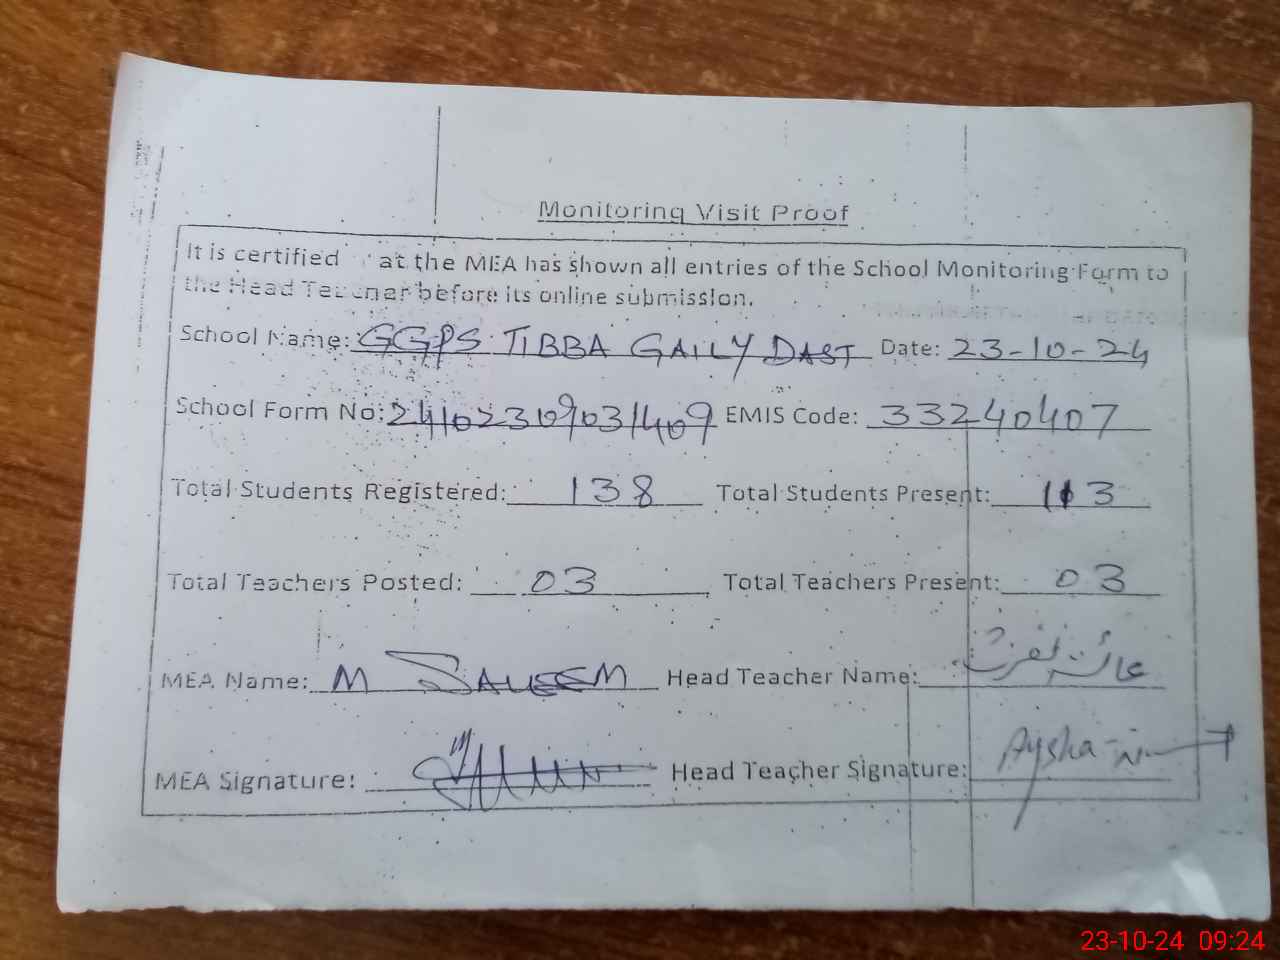 Monitoring Visit Proof
It is certified at the MEA has shown all entries of the School Monitoring Form to
the Head Teacher before its online submission.
School Name: GGPS TIBBA GAILY DAST Date: 23-10-24
School Form No: 241023109031409 EMIS Code: 33240407
Total Students Registered: 138 Total Students Present: 113
Total Teachers Posted: 03 Total Teachers Present: 03
MEA Name: M SALEEM Head Teacher Name:
MEA Signature: Head Teacher Signature: Aysha
23-10-24 09:24